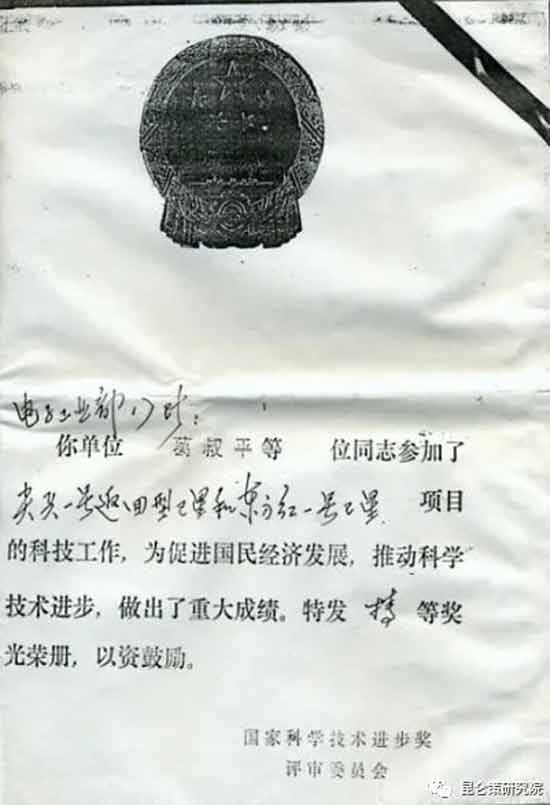 电子工业部17所:
你单位 葛叔平等 位同志参加了
尖兵一号返回型卫星和东方红一号卫星 项目
的科技工作，为促进国民经济发展，推动科学
技术进步，做出了重大成绩。特发 特 等奖
光荣册，以资鼓励。
国家科学技术进步奖
评审委员会
昆仑策研究院